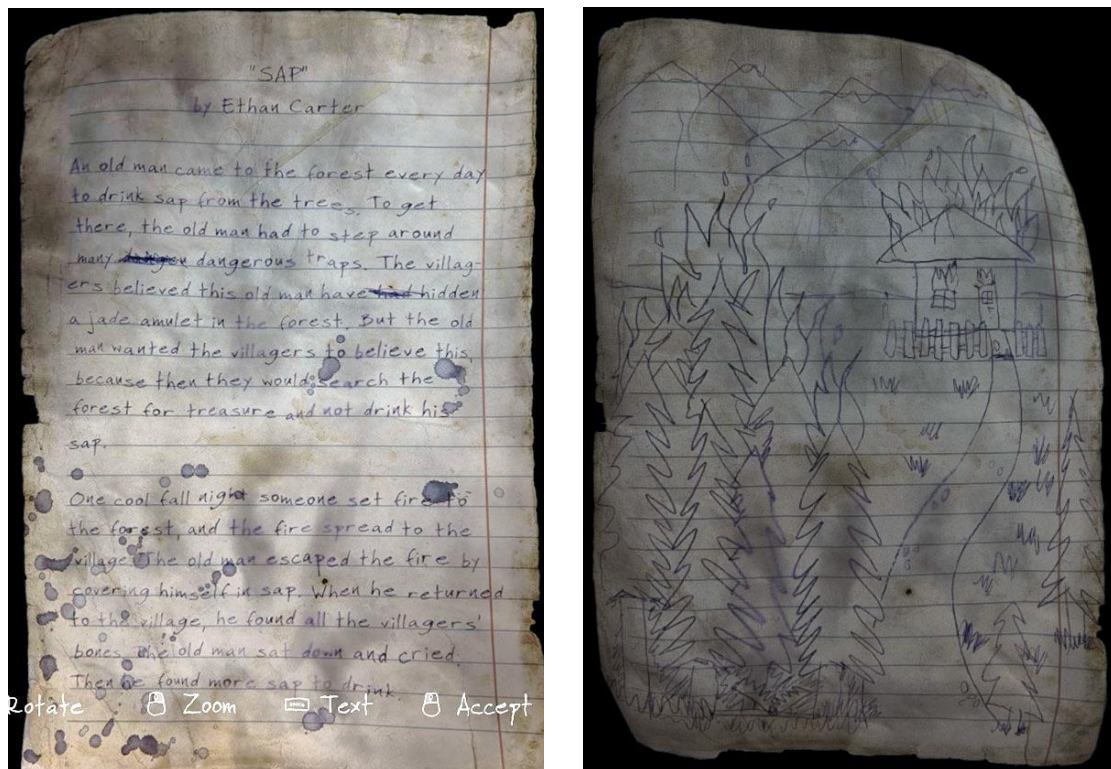 "SAP"
by Ethan Carter
An old man came to the forest every day
to drink sap from the trees. To get
there, the old man had to step around
many dangerous traps. The villag-
ers believed this old man have hidden
a jade amulet in the forest. But the old
man wanted the villagers to believe this,
because then they would search the
forest for treasure and not drink his
sap.
One cool fall night someone set fire to
the forest, and the fire spread to the
village. The old man escaped the fire by
covering himself in sap. When he returned
to the village, he found all the villagers'
bones. The old man sat down and cried.
Then he found more sap to drink
Rotate Zoom Text Accept